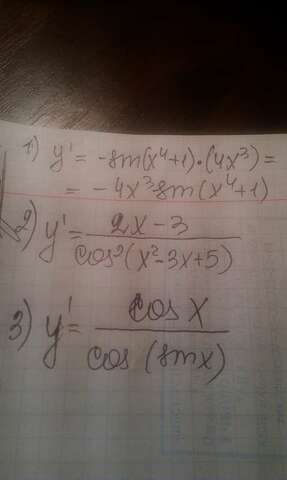 1) y' = -sin(x⁴+1)·(4x³) =
= -4x³ sin(x⁴+1)
2) y' = 2x-3 / cos²(x²-3x+5)
3) y' = cos x / cos (sin x)